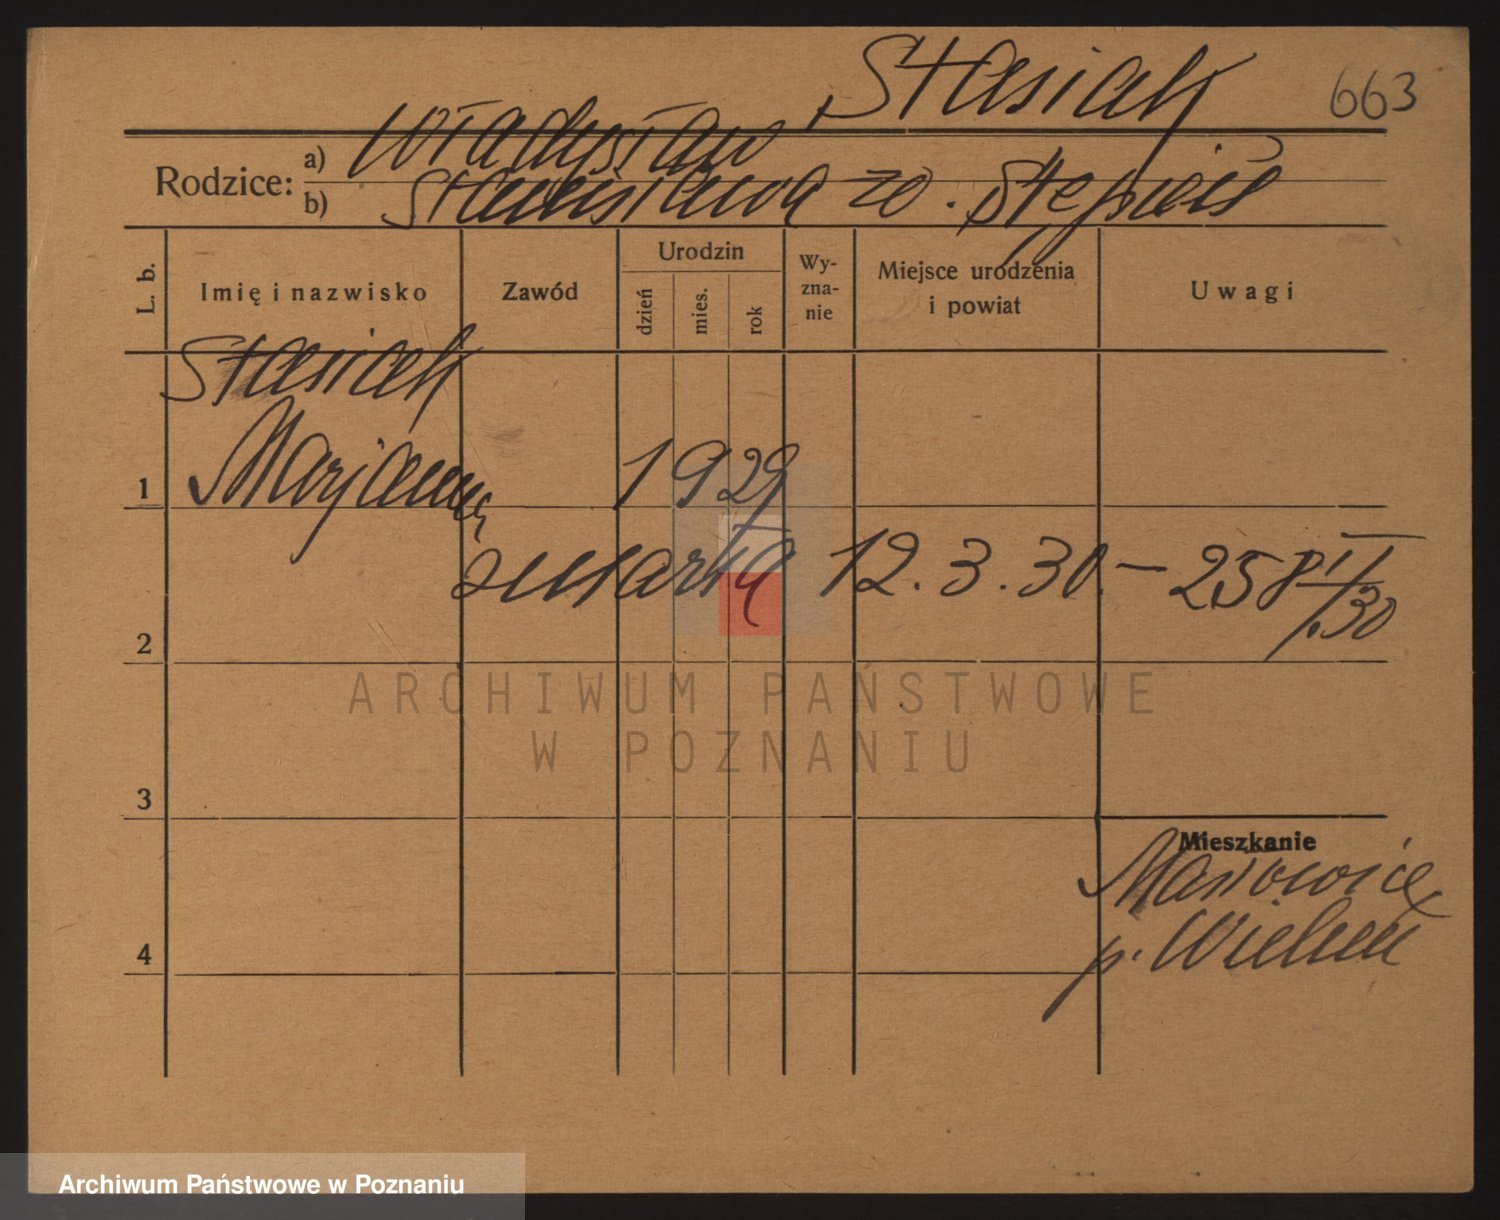 Stasiak 663
Rodzice: a) Władysław
b) Stanisława zd. Stępień
L. b.
Imię i nazwisko
Zawód
Urodzin
dzień
mies.
rok
Wy-
zna-
nie
Miejsce urodzenia
i powiat
Uwagi
Stasiak
1 Marjanna 1929
zmarła 12.3.30. – 258 II/.30
2
ARCHIWUM PAŃSTWOWE
W POZNANIU
3
Mieszkanie
p. Wieluń
4
Archiwum Państwowe w Poznaniu